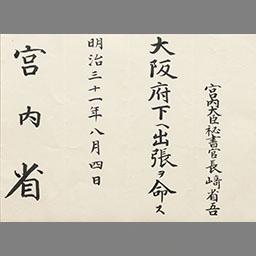 宮內大臣祕書官長崎省吾
大阪府下ヘ出張ヲ命ス
明治三十一年八月四日
宮內省